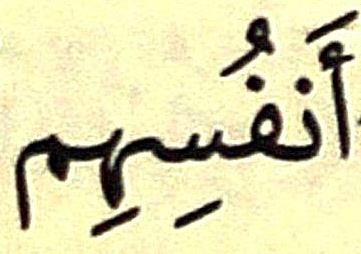 أَنفُسِهِم